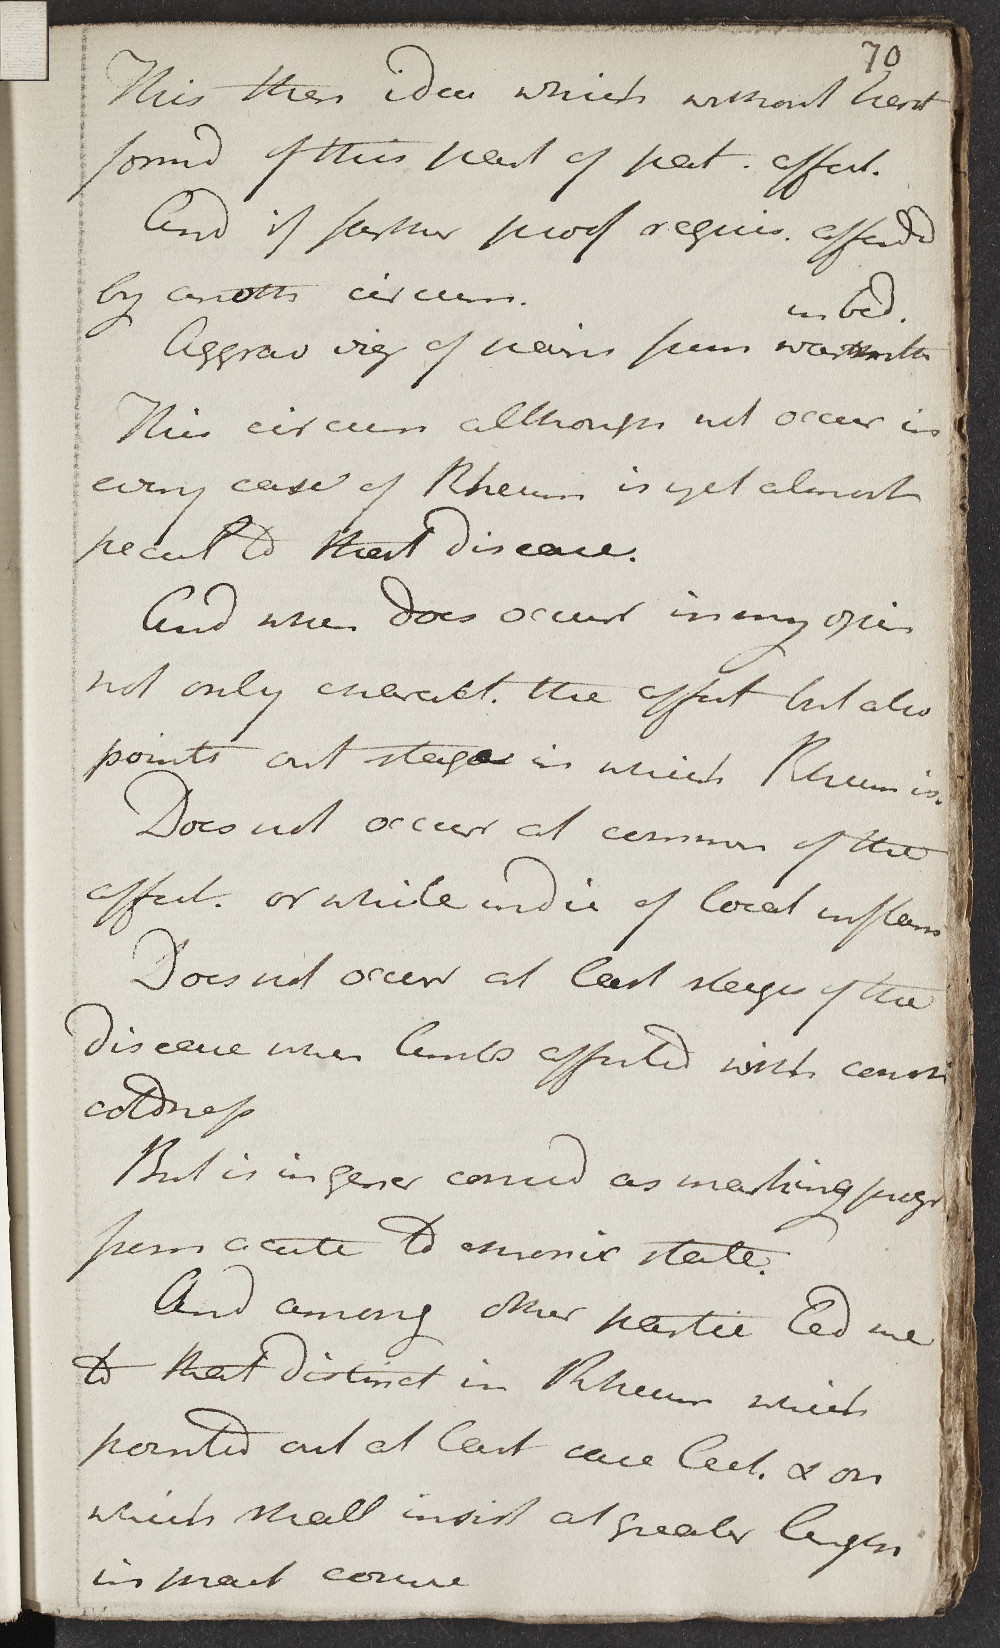 70
This then idea which without hesit
formd of this part of pat. affect.
And if farther proof requis. affordd
by anoth circum.
in bed.
Aggrav of pains from warmth
This circum although not occur in
every case of Rheum is yet almost
pecul to that disease.
And when does occur in my opin
not only charact. the affect but also
points out stage in which Rheum is.
Does not occur at commen of the
affect. or while indic of local inflam
Does not occur at last stages of the
disease when limbs affected with
coldness
But is in gener consid as marking progr
from acute to chronic state.
And among other partic led me
to that distinct in Rheum which
pointed out at last case lect. & on
which shall insist at greater length
in pract course